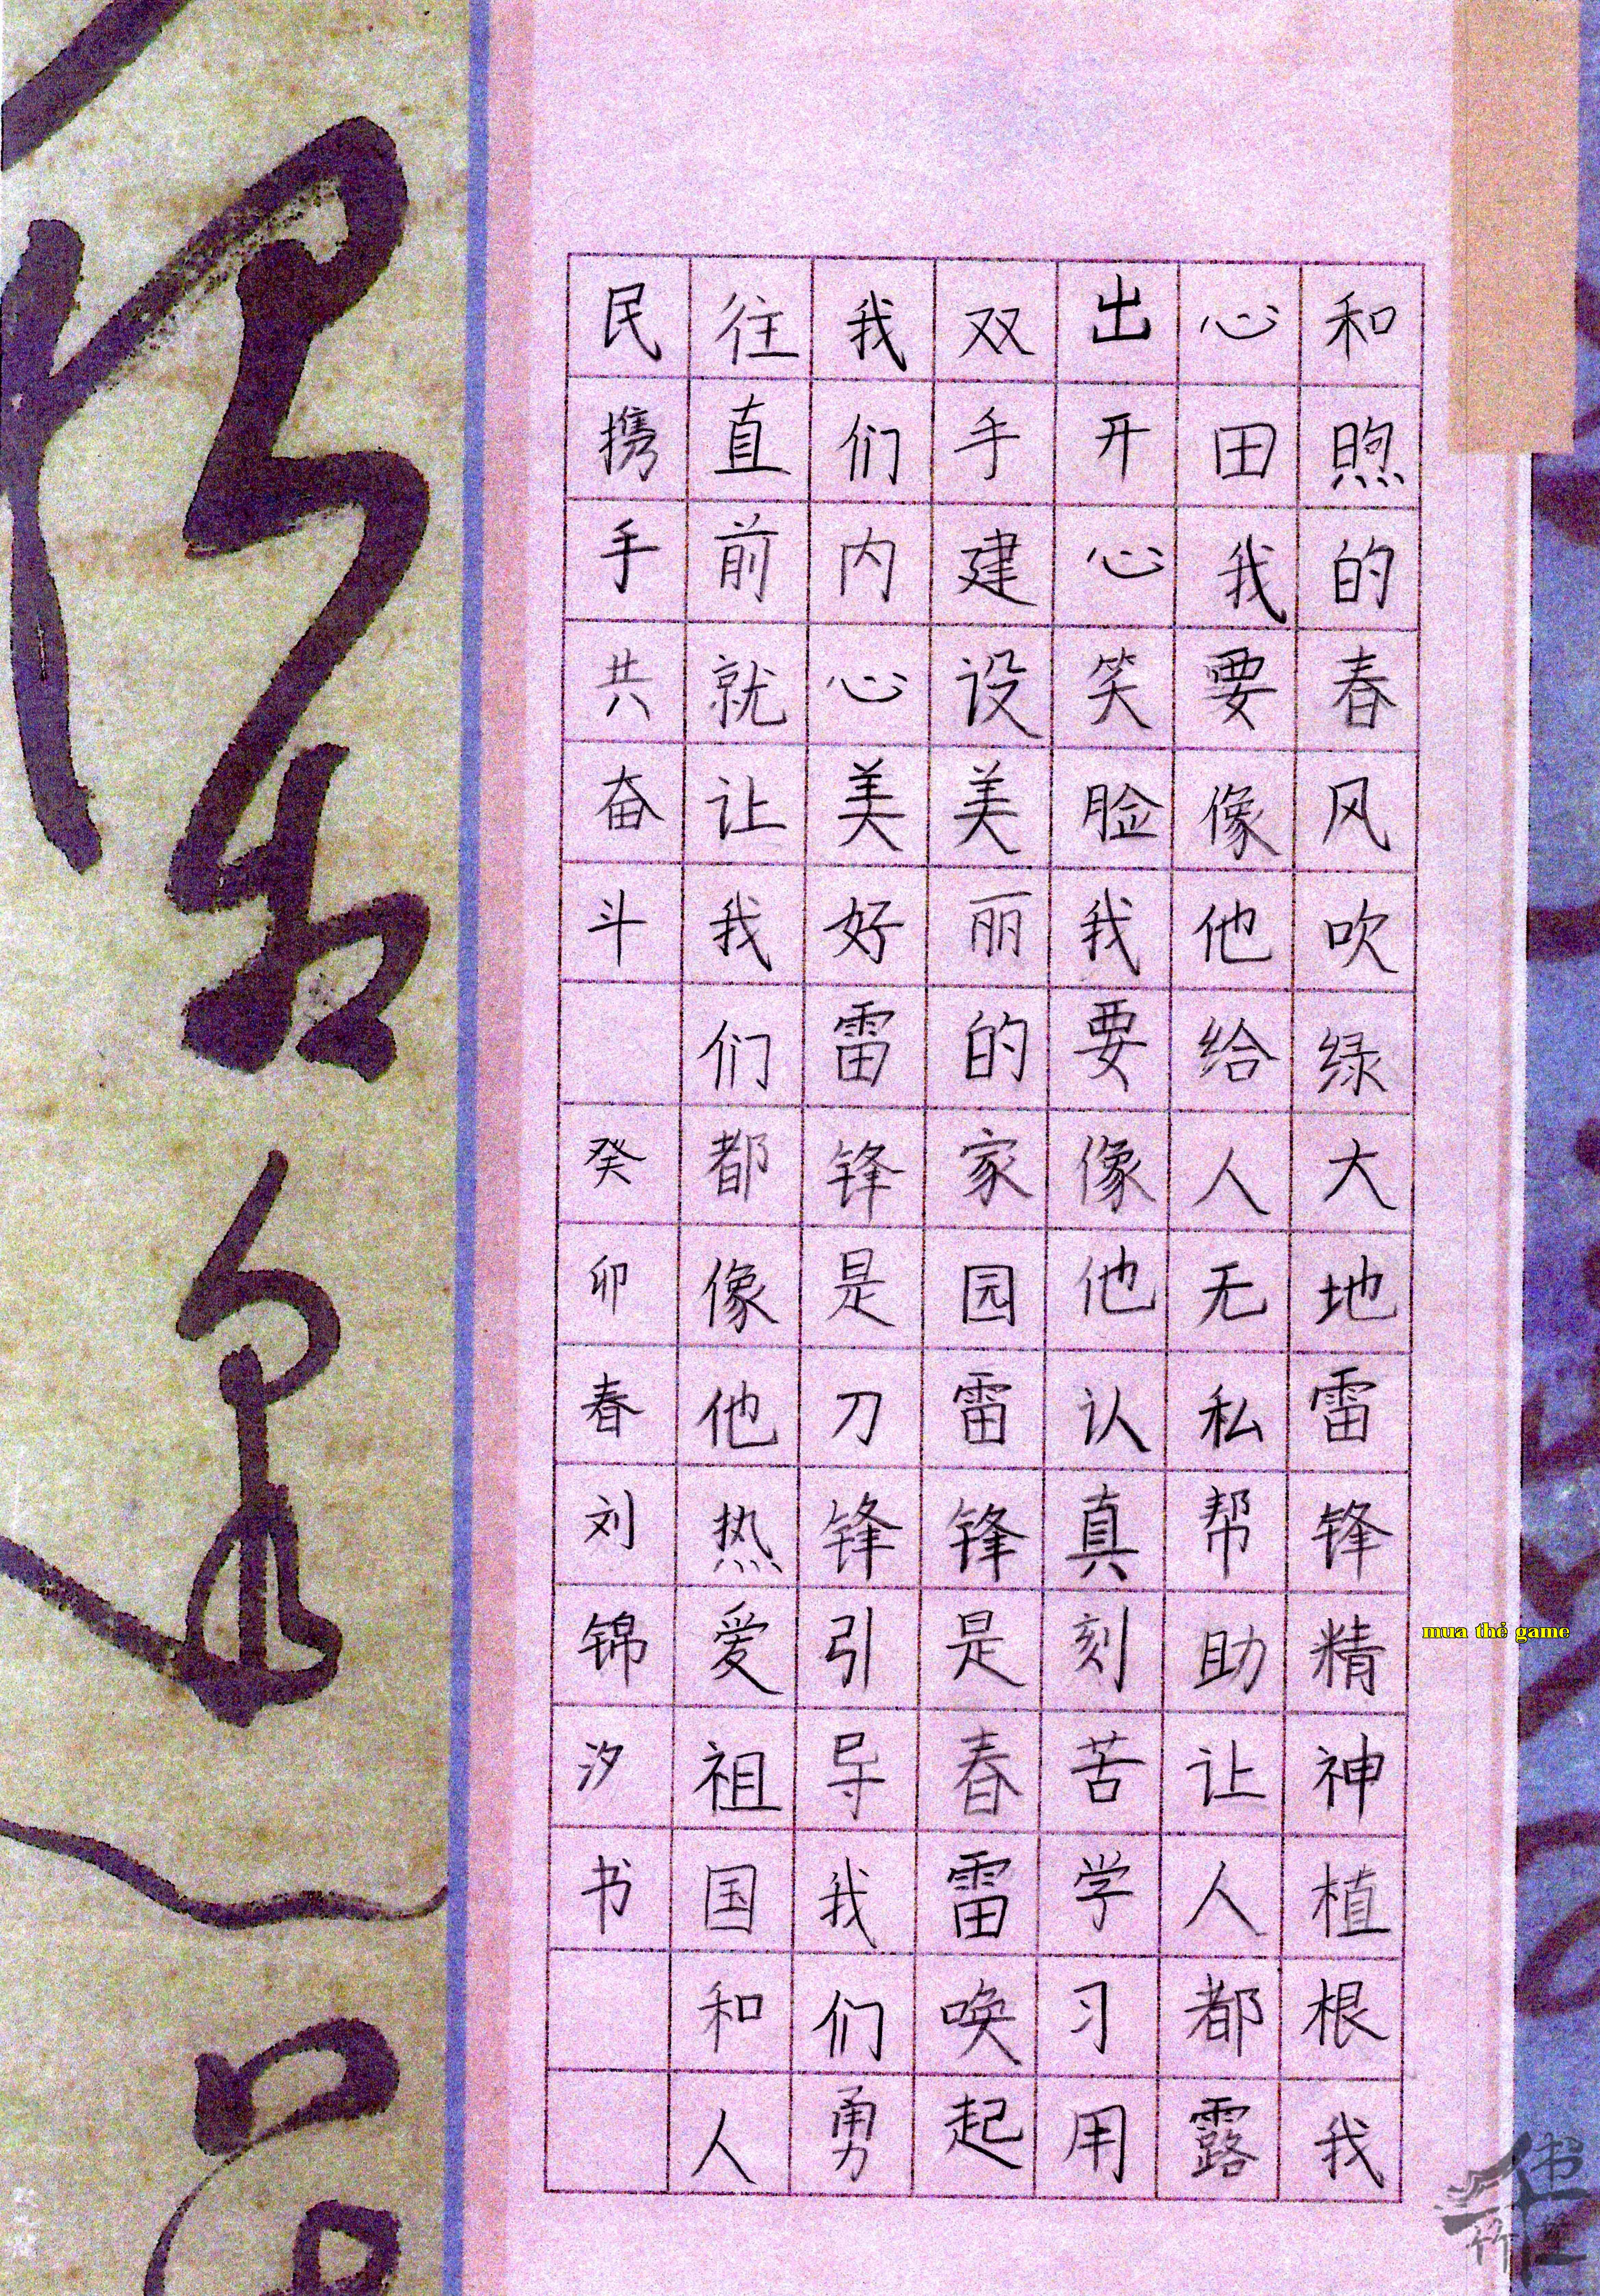 和煦的春风吹绿大地雷锋精神植根我
心田我要像他给人无私帮助让人都露
出开心笑脸我要像他认真刻苦学习用
双手建设美丽的家园雷锋是春雷唤起
我们内心美好雷锋是刀锋引导我们勇
往直前就让我们都像他热爱祖国和人
民携手共奋斗 癸卯春刘锦汐书
mua thẻ game